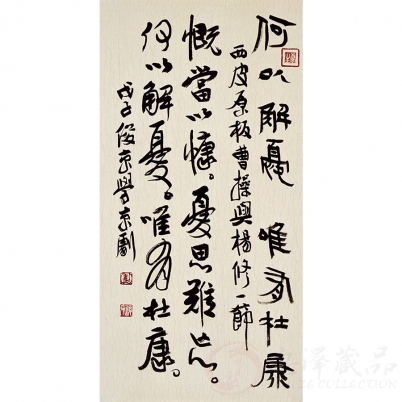 何以解憂 唯有杜康
西皮原板曹操與楊修一節
慨當以慷。憂思難忘。
何以解憂。唯有杜康。
戊子俊京學京劇
藏品
COLLECTION